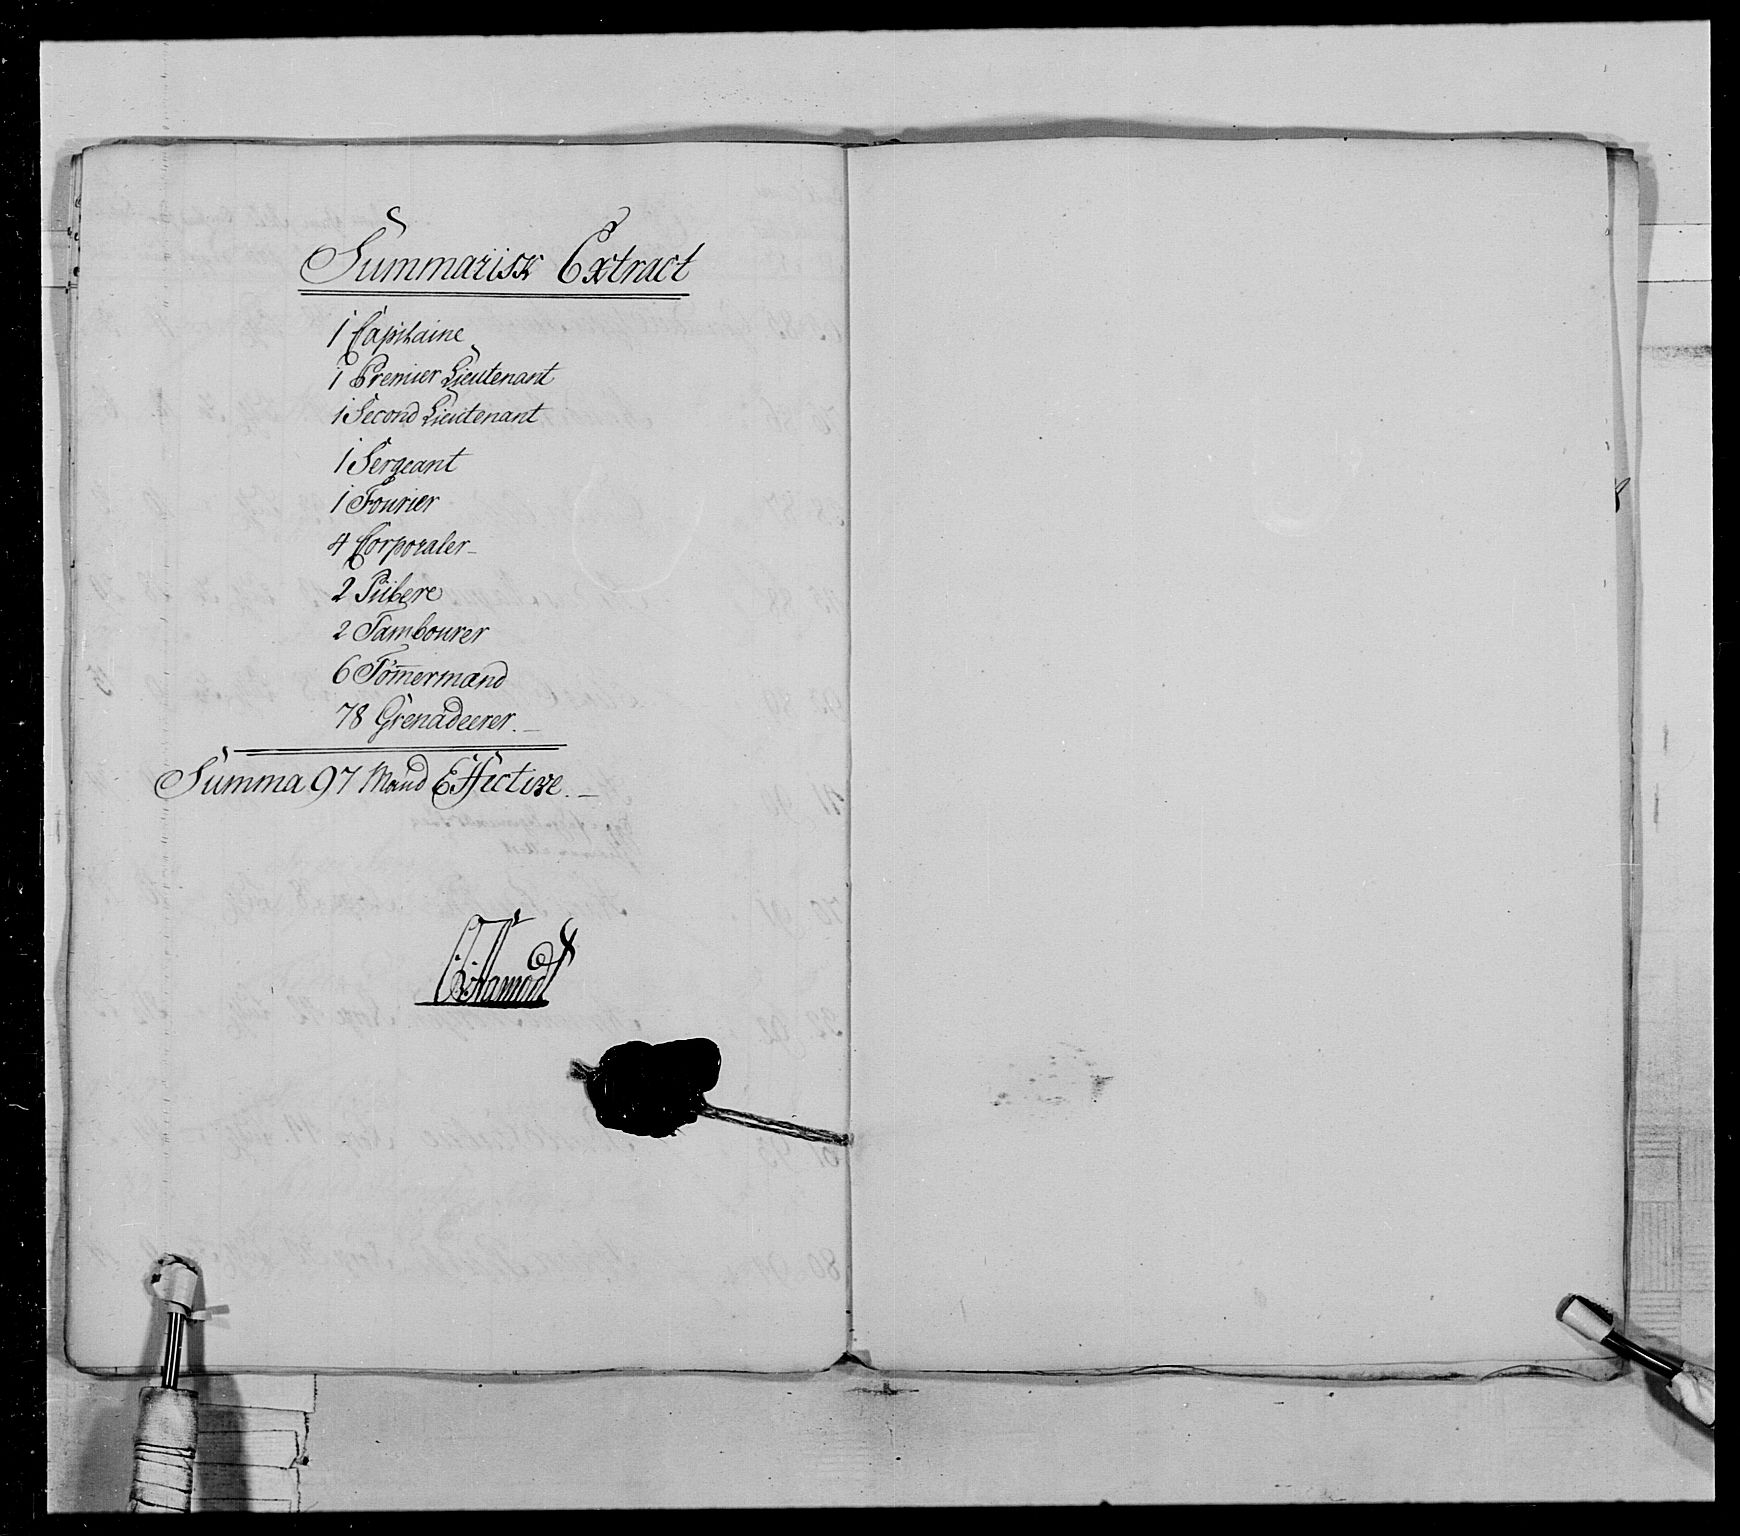 Summarisk Extract
1 Capitaine
1 Premier Lieutenant
1 Second Lieutenant
1 Sergeant
1 Fourier
4 Corporaler
2 Pibere
2 Tambourer
6 Tom̅ermænd
78 Grenadeerer.
Summa 97 Mand Effective.